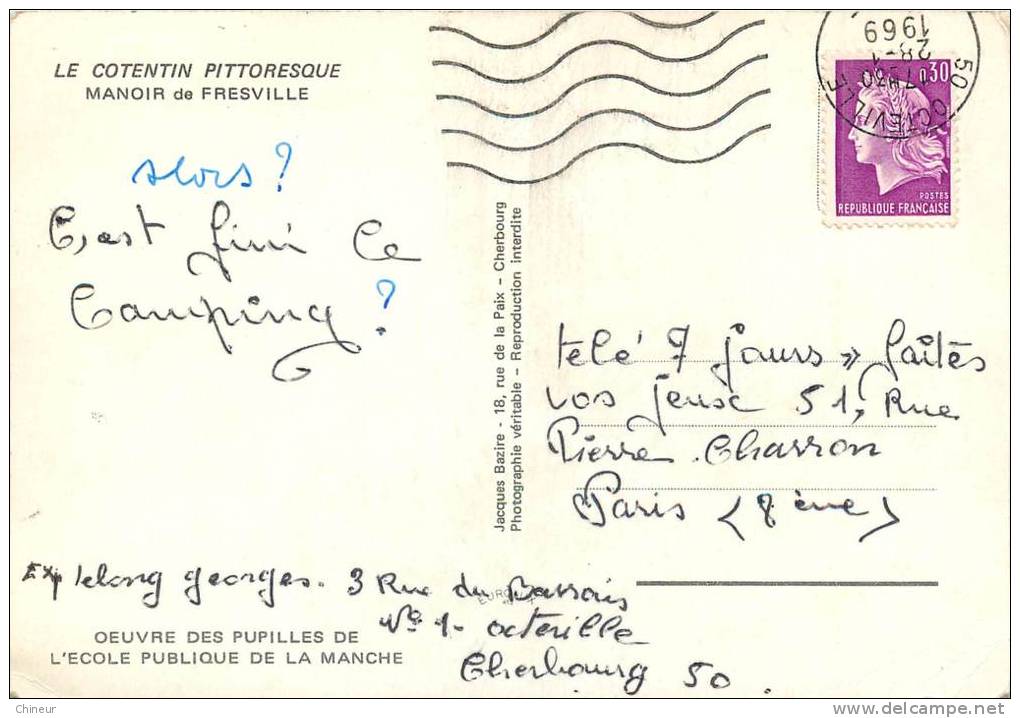 LE COTENTIN PITTORESQUE
MANOIR de FRESVILLE
alors ?
C'est fini le
Camping ?
Jacques Bazire - 18, rue de la Paix - Cherbourg
Photographie véritable - Reproduction interdite
50 OCTEVILLE
17H30
28-1
1969
0,30
POSTES
REPUBLIQUE FRANÇAISE
telé 7 jours » faîtes
vos jeux 51, Rue
Pierre Charron
Paris (8 ème)
Exp lelong georges. 3 Rue du
N° 1- octeville
Cherbourg 50.
OEUVRE DES PUPILLES DE
L'ECOLE PUBLIQUE DE LA MANCHE
Chineur
delcampe.net